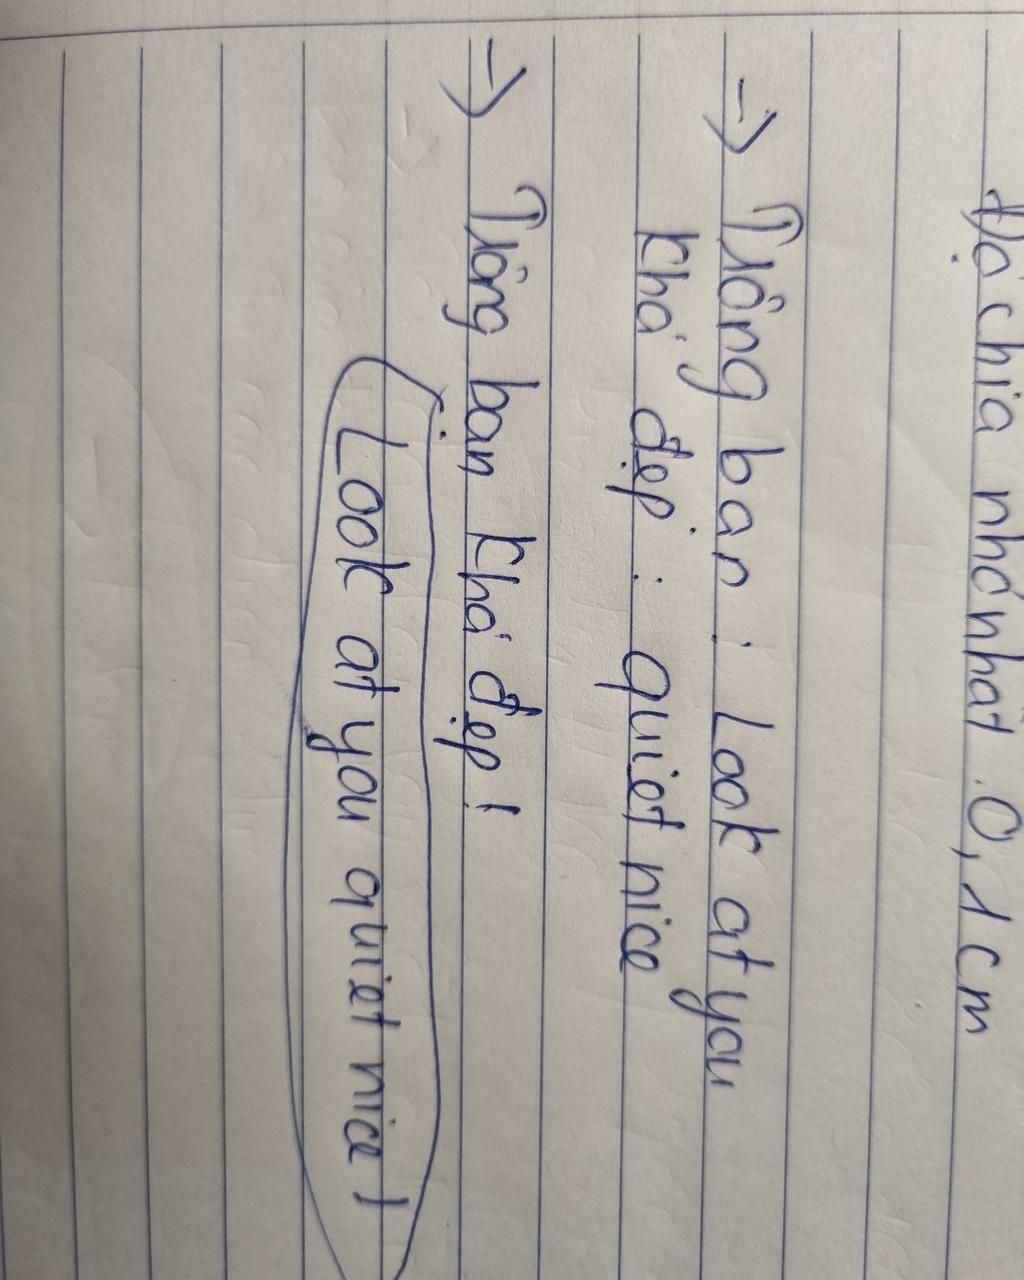 Độ chia nhỏ nhất . 0,1 cm
→ Trông bạn : Look at you
khá đẹp : quiet nice
→ Trông bạn khá đẹp !
Look at you quiet nice !